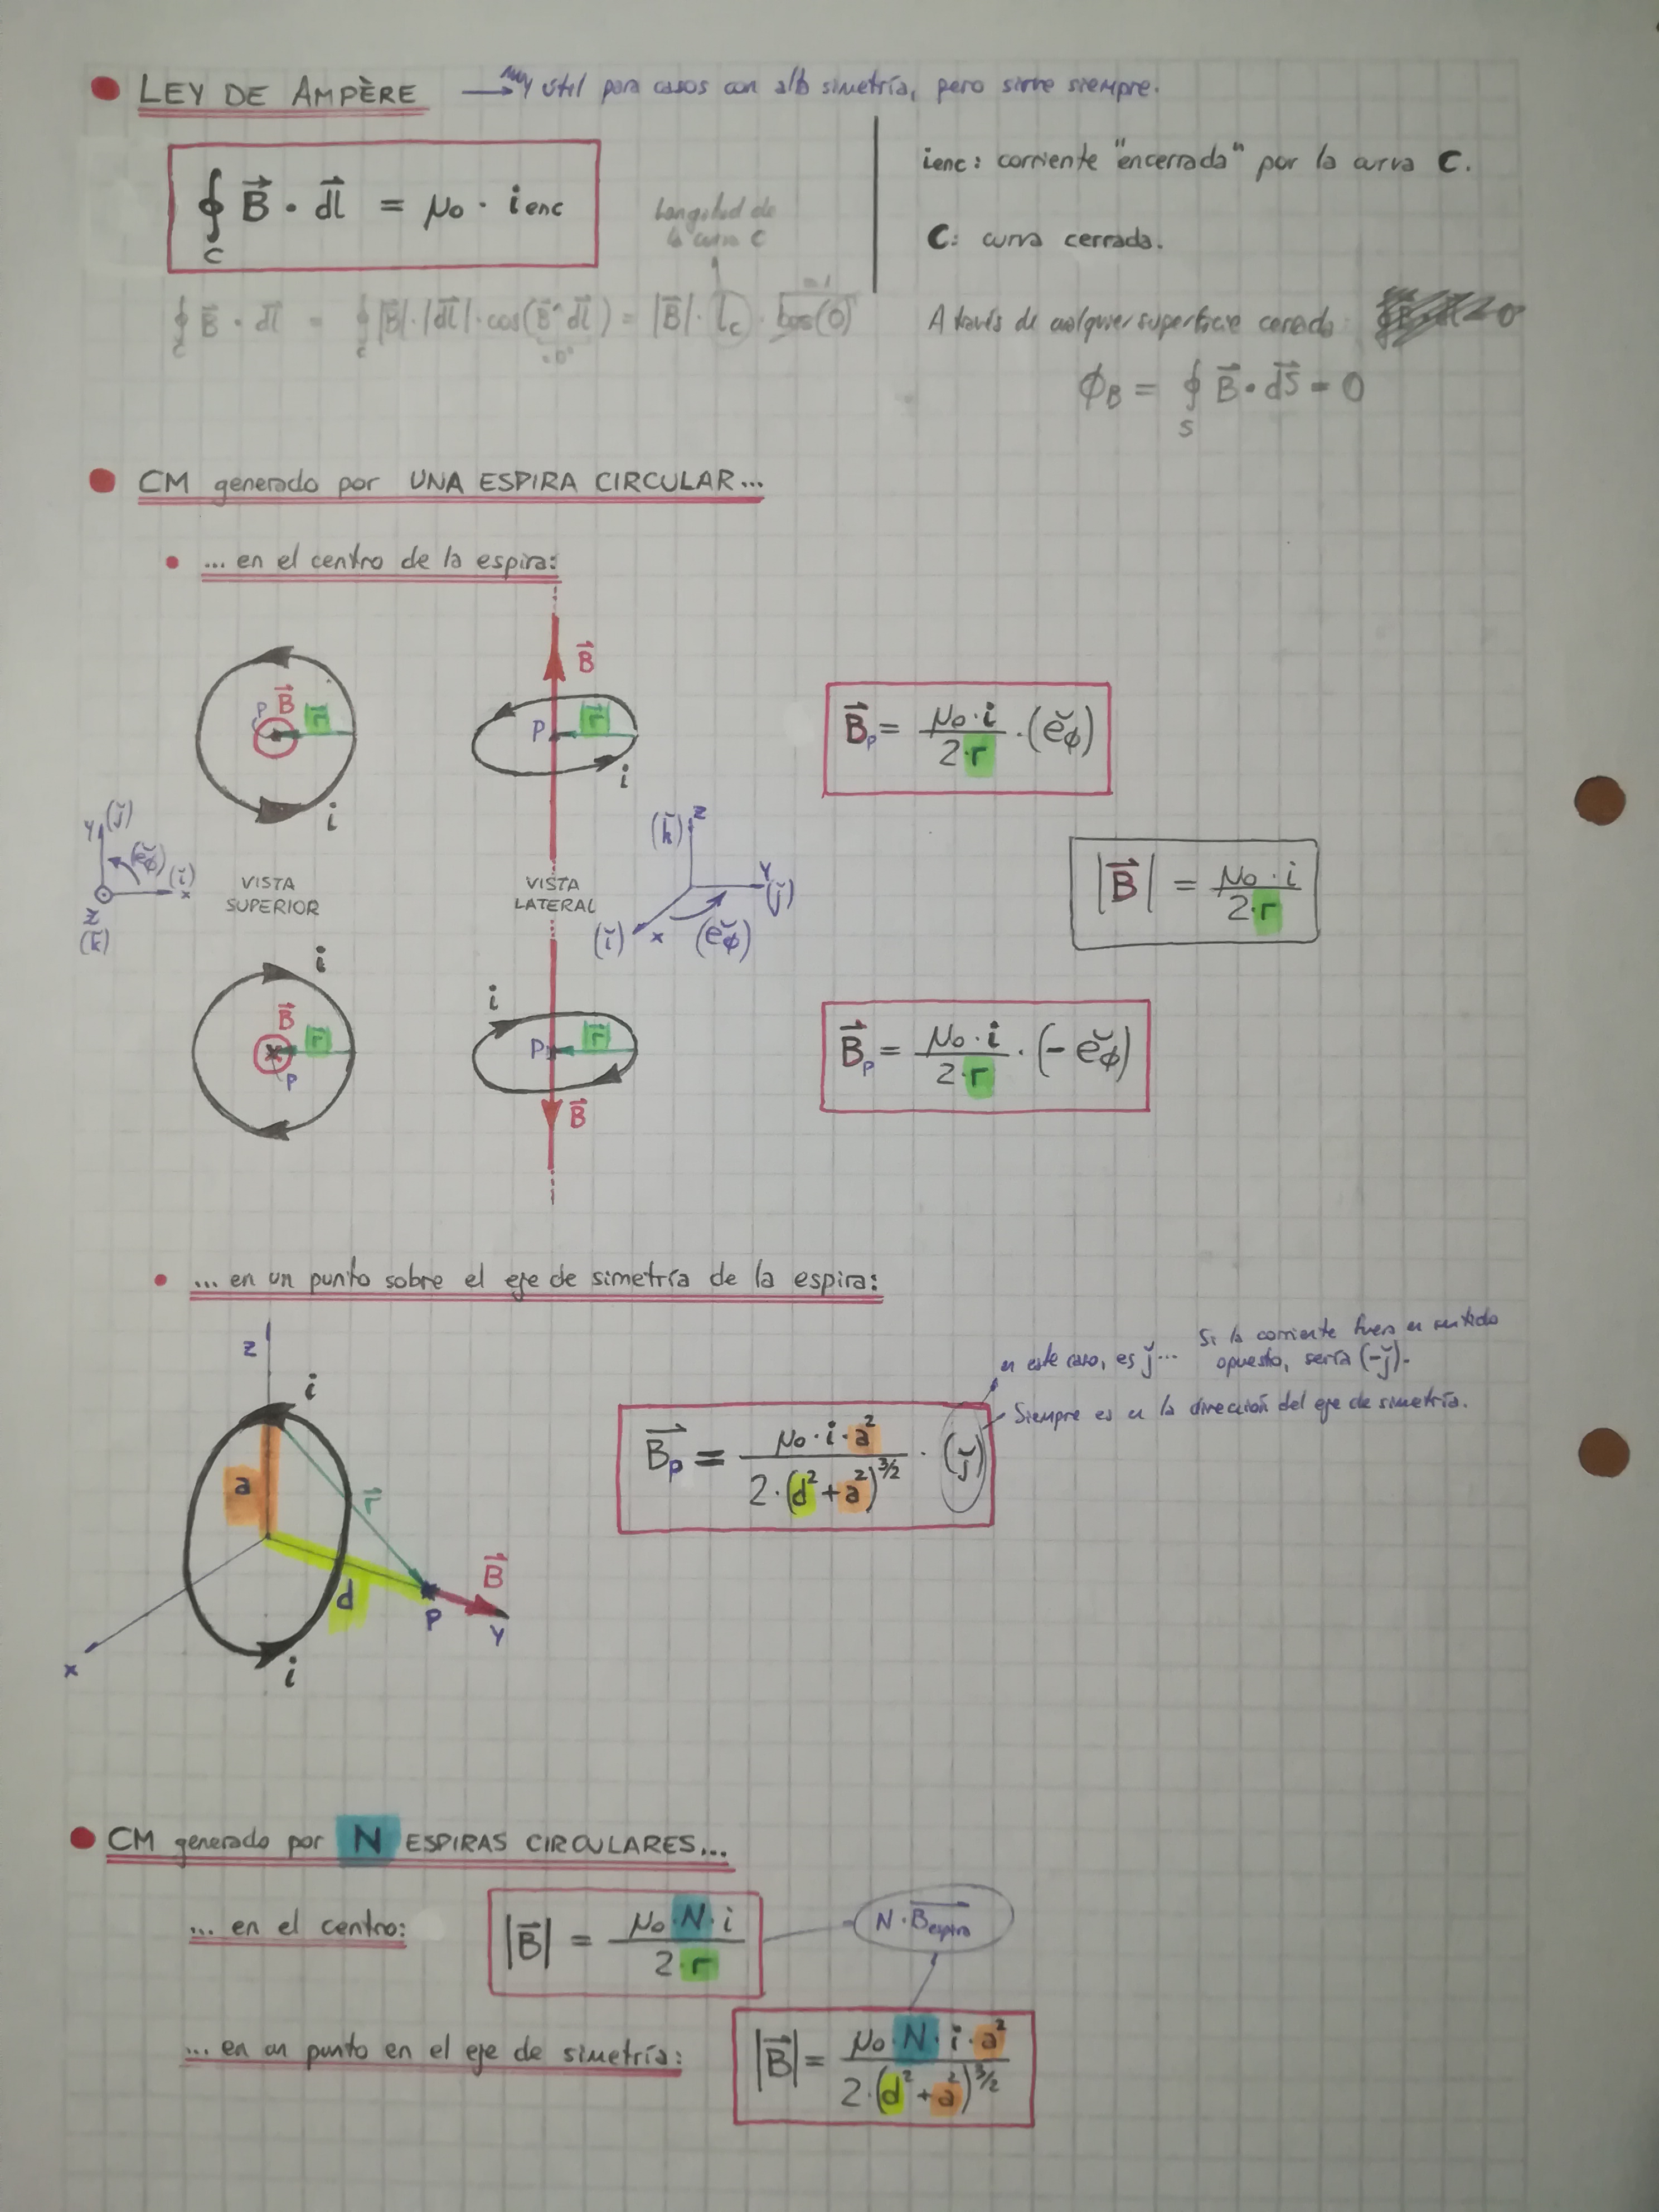 LEY DE AMPÈRE → Muy útil para casos con alta simetría, pero sirve siempre.
∮_C B⃗ · dl⃗ = μ₀ · i enc
ienc: corriente "encerrada" por la curva C.
C: curva cerrada.
Longitud de
la curva C
∮_C B⃗ · dl⃗ = ∮_C |B⃗| · |dl⃗| · cos(B⃗^dl⃗) = |B⃗| · l_C · cos(0)
=0°
=1
A través de cualquier superficie cerrada:
ϕ_B = ∮_S B⃗ · dS⃗ = 0
CM generado por UNA ESPIRA CIRCULAR...
... en el centro de la espira:
P B⃗ r⃗ i
B⃗ P r⃗ i
B⃗_P = μ₀·i / 2·r · (ĕ_ϕ)
Y (j̆) (ĕ_ϕ) (ĭ) x Z (k̆)
VISTA
SUPERIOR
VISTA
LATERAL
(k̆) Z Y (j̆) (ĭ) x (ĕ_ϕ)
|B⃗| = μ₀·i / 2·r
i B⃗ r⃗ P
i P r⃗ B⃗
B⃗_P = μ₀·i / 2·r · (-ĕ_ϕ)
... en un punto sobre el eje de simetría de la espira:
z i a r⃗ d P B⃗ Y x i
B⃗_P = μ₀·i·a² / 2·(d²+a²)^3/2 · (j̆)
en este caso, es j̆... Si la corriente fuera en sentido
opuesto, sería (-j̆).
Siempre es en la dirección del eje de simetría.
CM generado por N ESPIRAS CIRCULARES...
... en el centro:
|B⃗| = μ₀·N·i / 2·r
N·B⃗espira
... en un punto en el eje de simetría:
|B⃗| = μ₀·N·i·a² / 2·(d²+a²)^3/2